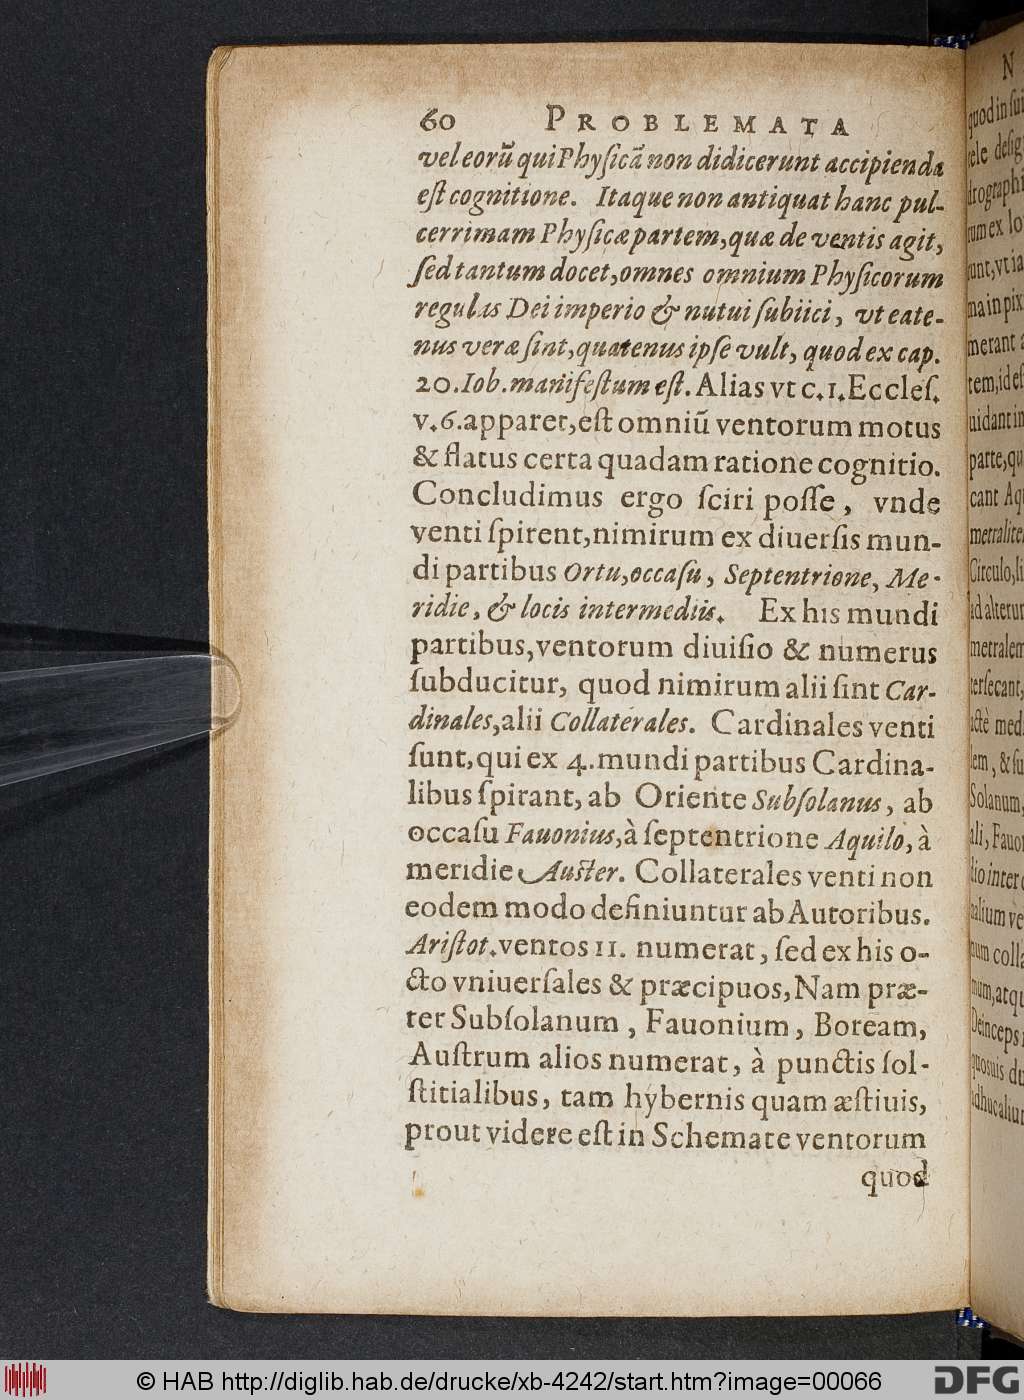 60 PROBLEMATA
vel eorū qui Physicā non didicerunt accipienda
est cognitione. Itaque non antiquat hanc pul-
cerrimam Physicæ partem, quæ de ventis agit,
sed tantum docet, omnes omnium Physicorum
regulas Dei imperio & nutui subiici, vt eate-
nus veræ sint, quatenus ipse vult, quod ex cap.
20. Iob. manifestum est. Alias vt c. 1. Eccles.
v. 6. apparet, est omniū ventorum motus
& flatus certa quadam ratione cognitio.
Concludimus ergo sciri posse, vnde
venti spirent, nimirum ex diuersis mun-
di partibus Ortu, occasu, Septentrione, Me-
ridie, & locis intermediis. Ex his mundi
partibus, ventorum diuisio & numerus
subducitur, quod nimirum alii sint Car-
dinales, alii Collaterales. Cardinales venti
sunt, qui ex 4. mundi partibus Cardina-
libus spirant, ab Oriente Subsolanus, ab
occasu Fauonius, à septentrione Aquilo, à
meridie Auster. Collaterales venti non
eodem modo definiuntur ab Autoribus.
Aristot. ventos 11. numerat, sed ex his o-
cto vniuersales & præcipuos, Nam præ-
ter Subsolanum, Fauonium, Boream,
Austrum alios numerat, à punctis sol-
stitialibus, tam hybernis quam æstiuis,
prout videre est in Schemate ventorum
quod
N
quod in sui
tele desig
drographi
rum ex lo
runt, vt ia
ma in pix
merant a
tem, id es
uidant in
parte, qu
cant Aq
metralite
Circulo, li
id alterur
metralem
tersecant,
ctè med
lem, & su
Solanum,
ali, Fauor
dio inter c
alium ve
num colla
num, atqu
Deinceps
quosuis du
adhuc alium
© HAB http://diglib.hab.de/drucke/xb-4242/start.htm?image=00066
DFG